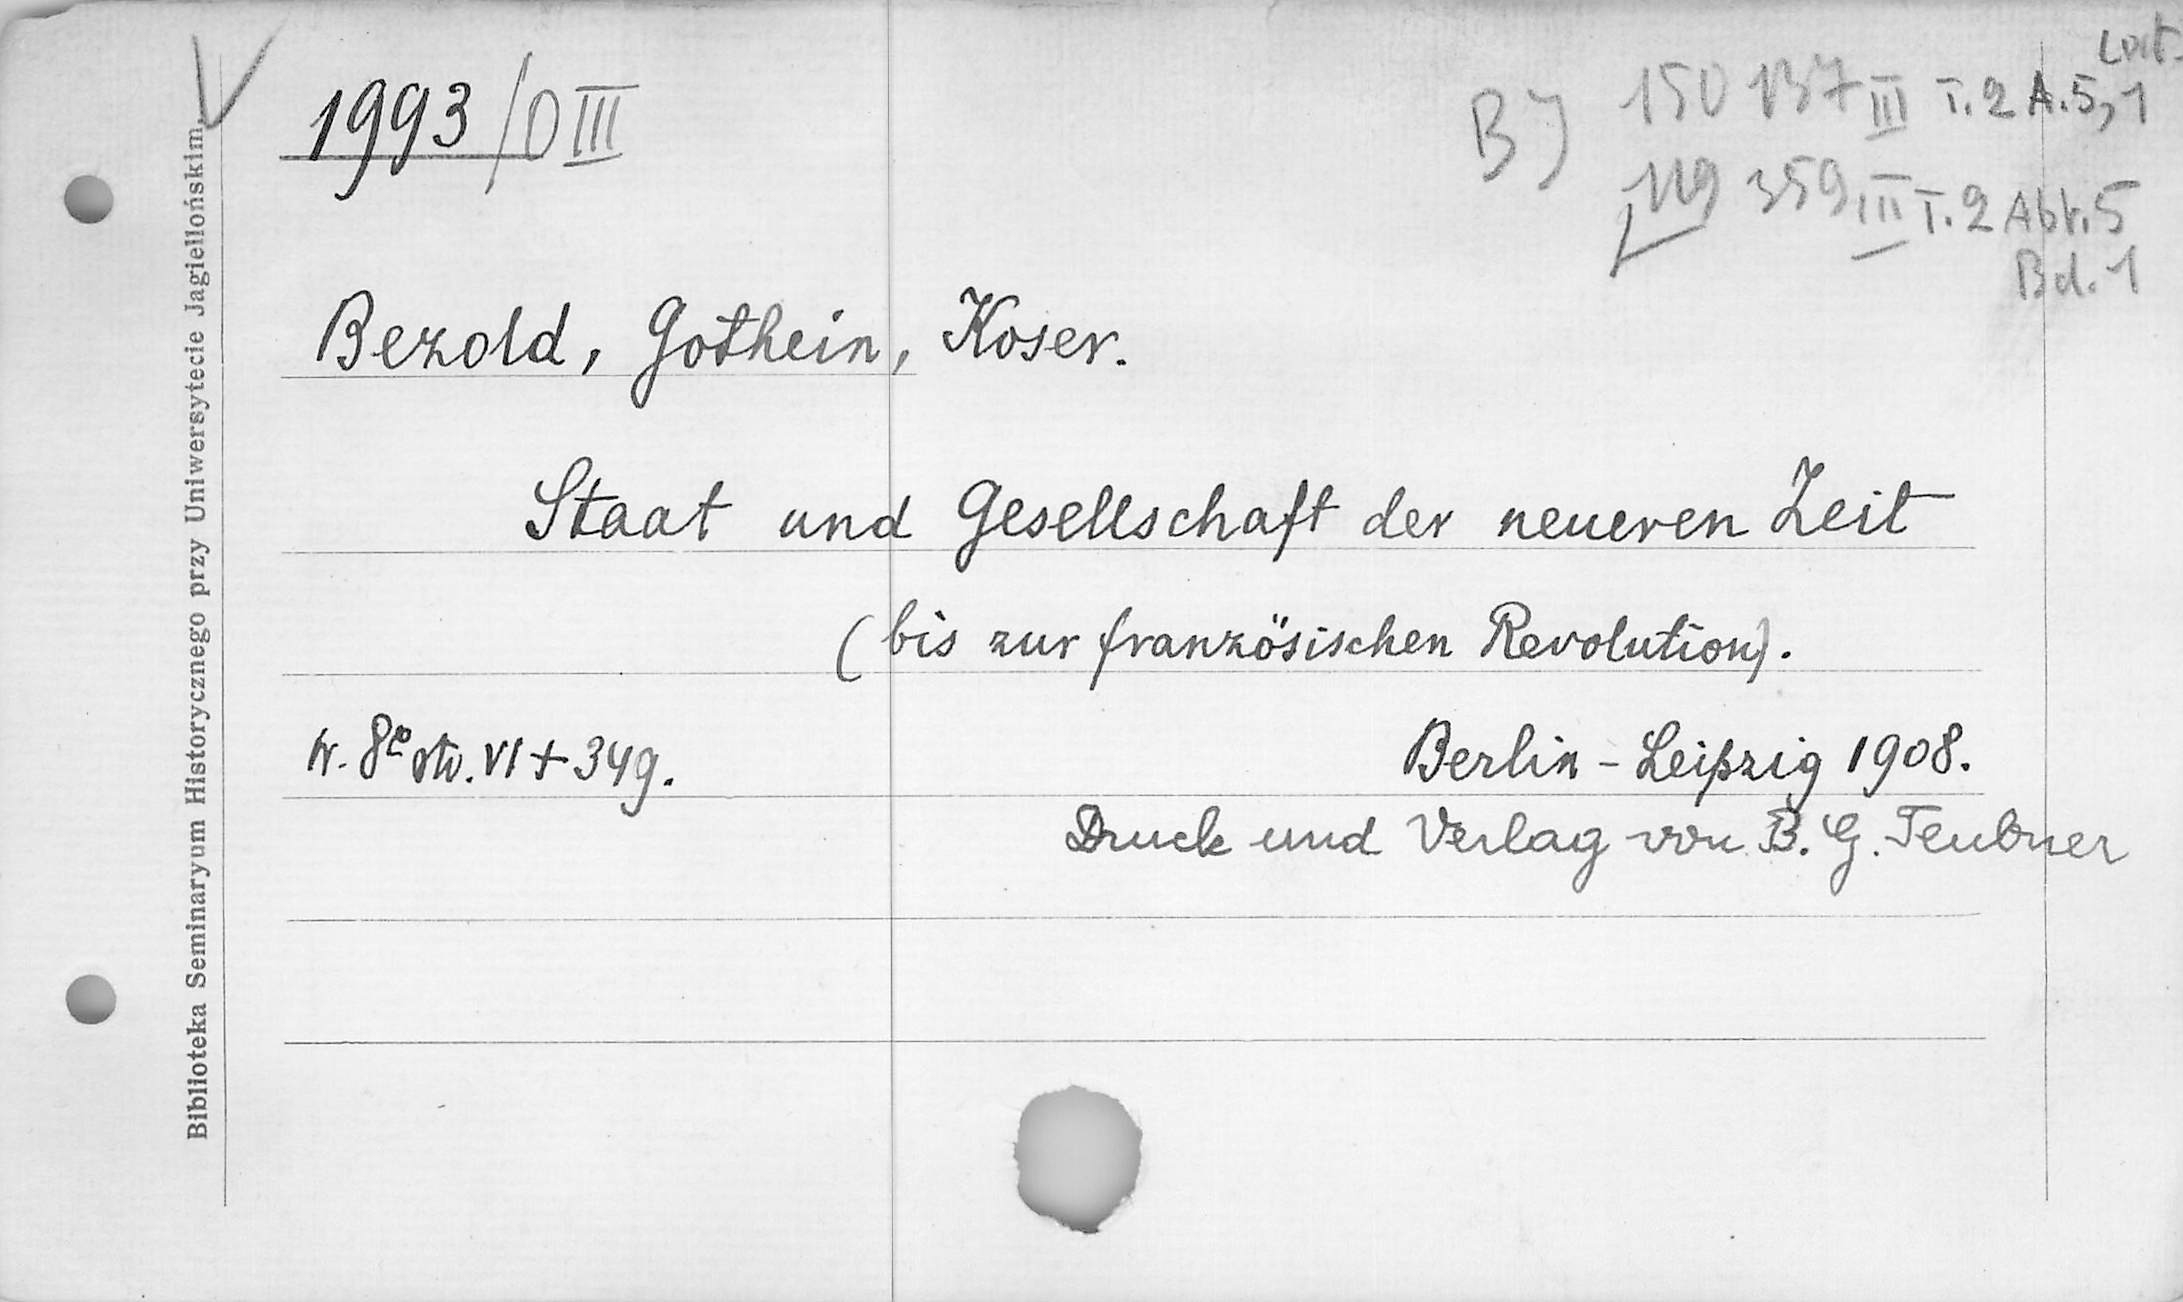 1993/D III
BJ 150 137 III T.2 A.5,1
119 359 III T.2 Abt.5
Bd. 1
Bezold, Gothein, Koser.
Staat und Gesellschaft der neueren Zeit
(bis zur französischen Revolution).
w. 8º str. VI + 349.
Berlin - Leipzig 1908.
Druck und Verlag von B. G. Teubner
Biblioteka Seminaryum Historycznego przy Uniwersytecie Jagiellońskim.